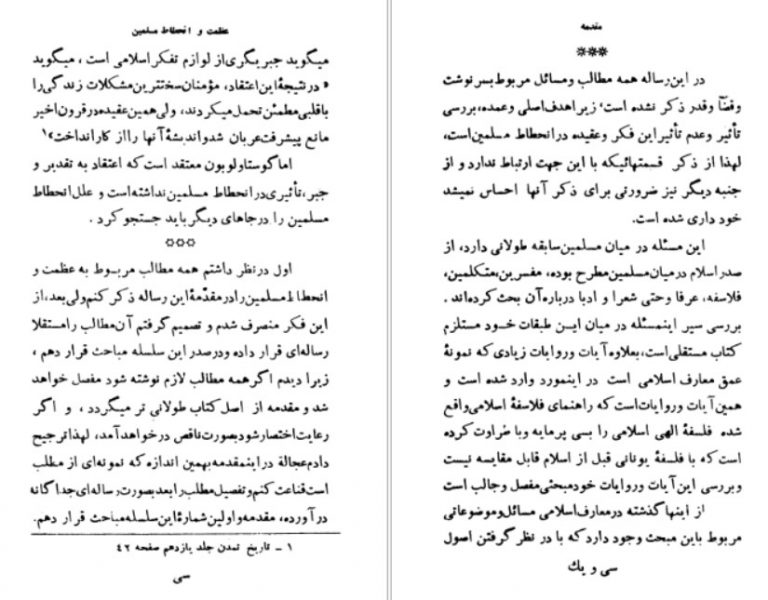 عظمت و انحطاط مسلمین
میگوید جبریگری از لوازم تفکر اسلامی است ، میگوید
« در نتیجهٔ این اعتقاد، مؤمنان سخت‌ترین مشکلات زندگی را
با قلبی مطمئن تحمل میکردند، ولی همین عقیده در قرون اخیر
مانع پیشرفت عربان شد و اندیشهٔ آنها را از کار انداخت»۱
اما گوستاولوبون معتقد است که اعتقاد به تقدیر و
جبر، تأثیری در انحطاط مسلمین نداشته است و علل انحطاط
مسلمین را در جاهای دیگر باید جستجو کرد .
***
اول در نظر داشتم همه مطالب مربوط به عظمت و
انحطاط مسلمین را در مقدّمهٔ این رساله ذکر کنم ولی بعد، از
این فکر منصرف شدم و تصمیم گرفتم آن مطالب را مستقلا
رساله‌ای قرار داده و در صدر این سلسله مباحث قرار دهم ،
زیرا دیدم اگر همه مطالب لازم نوشته شود مفصل خواهد
شد و مقدمه از اصل کتاب طولانی تر میگردد ، و اگر
رعایت اختصار شود بصورت ناقص در خواهد آمد، لهذا ترجیح
دادم عجالة در اینمقدمه بهمین اندازه که نمونه‌ای از مطلب
است قناعت کنم و تفصیل مطلب را بعد بصورت رساله‌ای جداگانه
در آورده، مقدمه و اولین شمارهٔ این سلسله مباحث قرار دهم.
۱ - تاریخ تمدن جلد یازدهم صفحه ۴۲
سی
مقدمه
***
در این رساله همه مطالب و مسائل مربوط بسرنوشت
وقضاً وقدر ذکر نشده است، زیرا هدف اصلی و عمده، بررسی
تأثیر وعدم تأثیر این فکر و عقیده در انحطاط مسلمین است،
لهذا از ذکر قسمتهائیکه با این جهت ارتباط ندارد و از
جنبه دیگر نیز ضرورتی برای ذکر آنها احساس نمیشد
خود داری شده است.
این مسئله در میان مسلمین سابقه طولانی دارد، از
صدر اسلام در میان مسلمین مطرح بوده، مفسرین، متکلمین،
فلاسفه، عرفا وحتی شعرا و ادبا درباره آن بحث کرده‌اند .
بررسی سیر اینمسئله در میان این طبقات خود مستلزم
کتاب مستقلی است، بعلاوه آیات وروایات زیادی که نمونهٔ
عمق معارف اسلامی است در اینمورد وارد شده است و
همین آیات وروایات است که راهنمای فلاسفهٔ اسلامی واقع
شده فلسفهٔ الهی اسلامی را بسی پرمایه وبا طراوت کرده
است که با فلسفهٔ یونانی قبل از اسلام قابل مقایسه نیست
و بررسی این آیات وروایات خود مبحثی مفصل و جالب است
از اینها گذشته در معارف اسلامی مسائل و موضوعاتی
مربوط باین مبحث وجود دارد که با در نظر گرفتن اصول
سی و یك